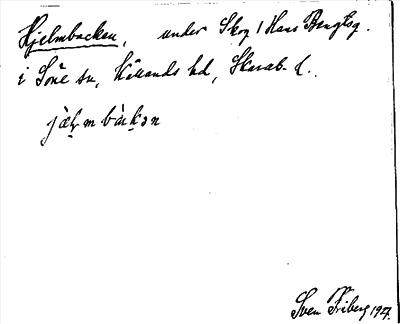 Hjelmbacken, under Skog / Hans Bengtsg.
i Söne sn, Kållands hd, Skarab. l.
jæ̀ḷm bàḳən
Sven Friberg 1927.